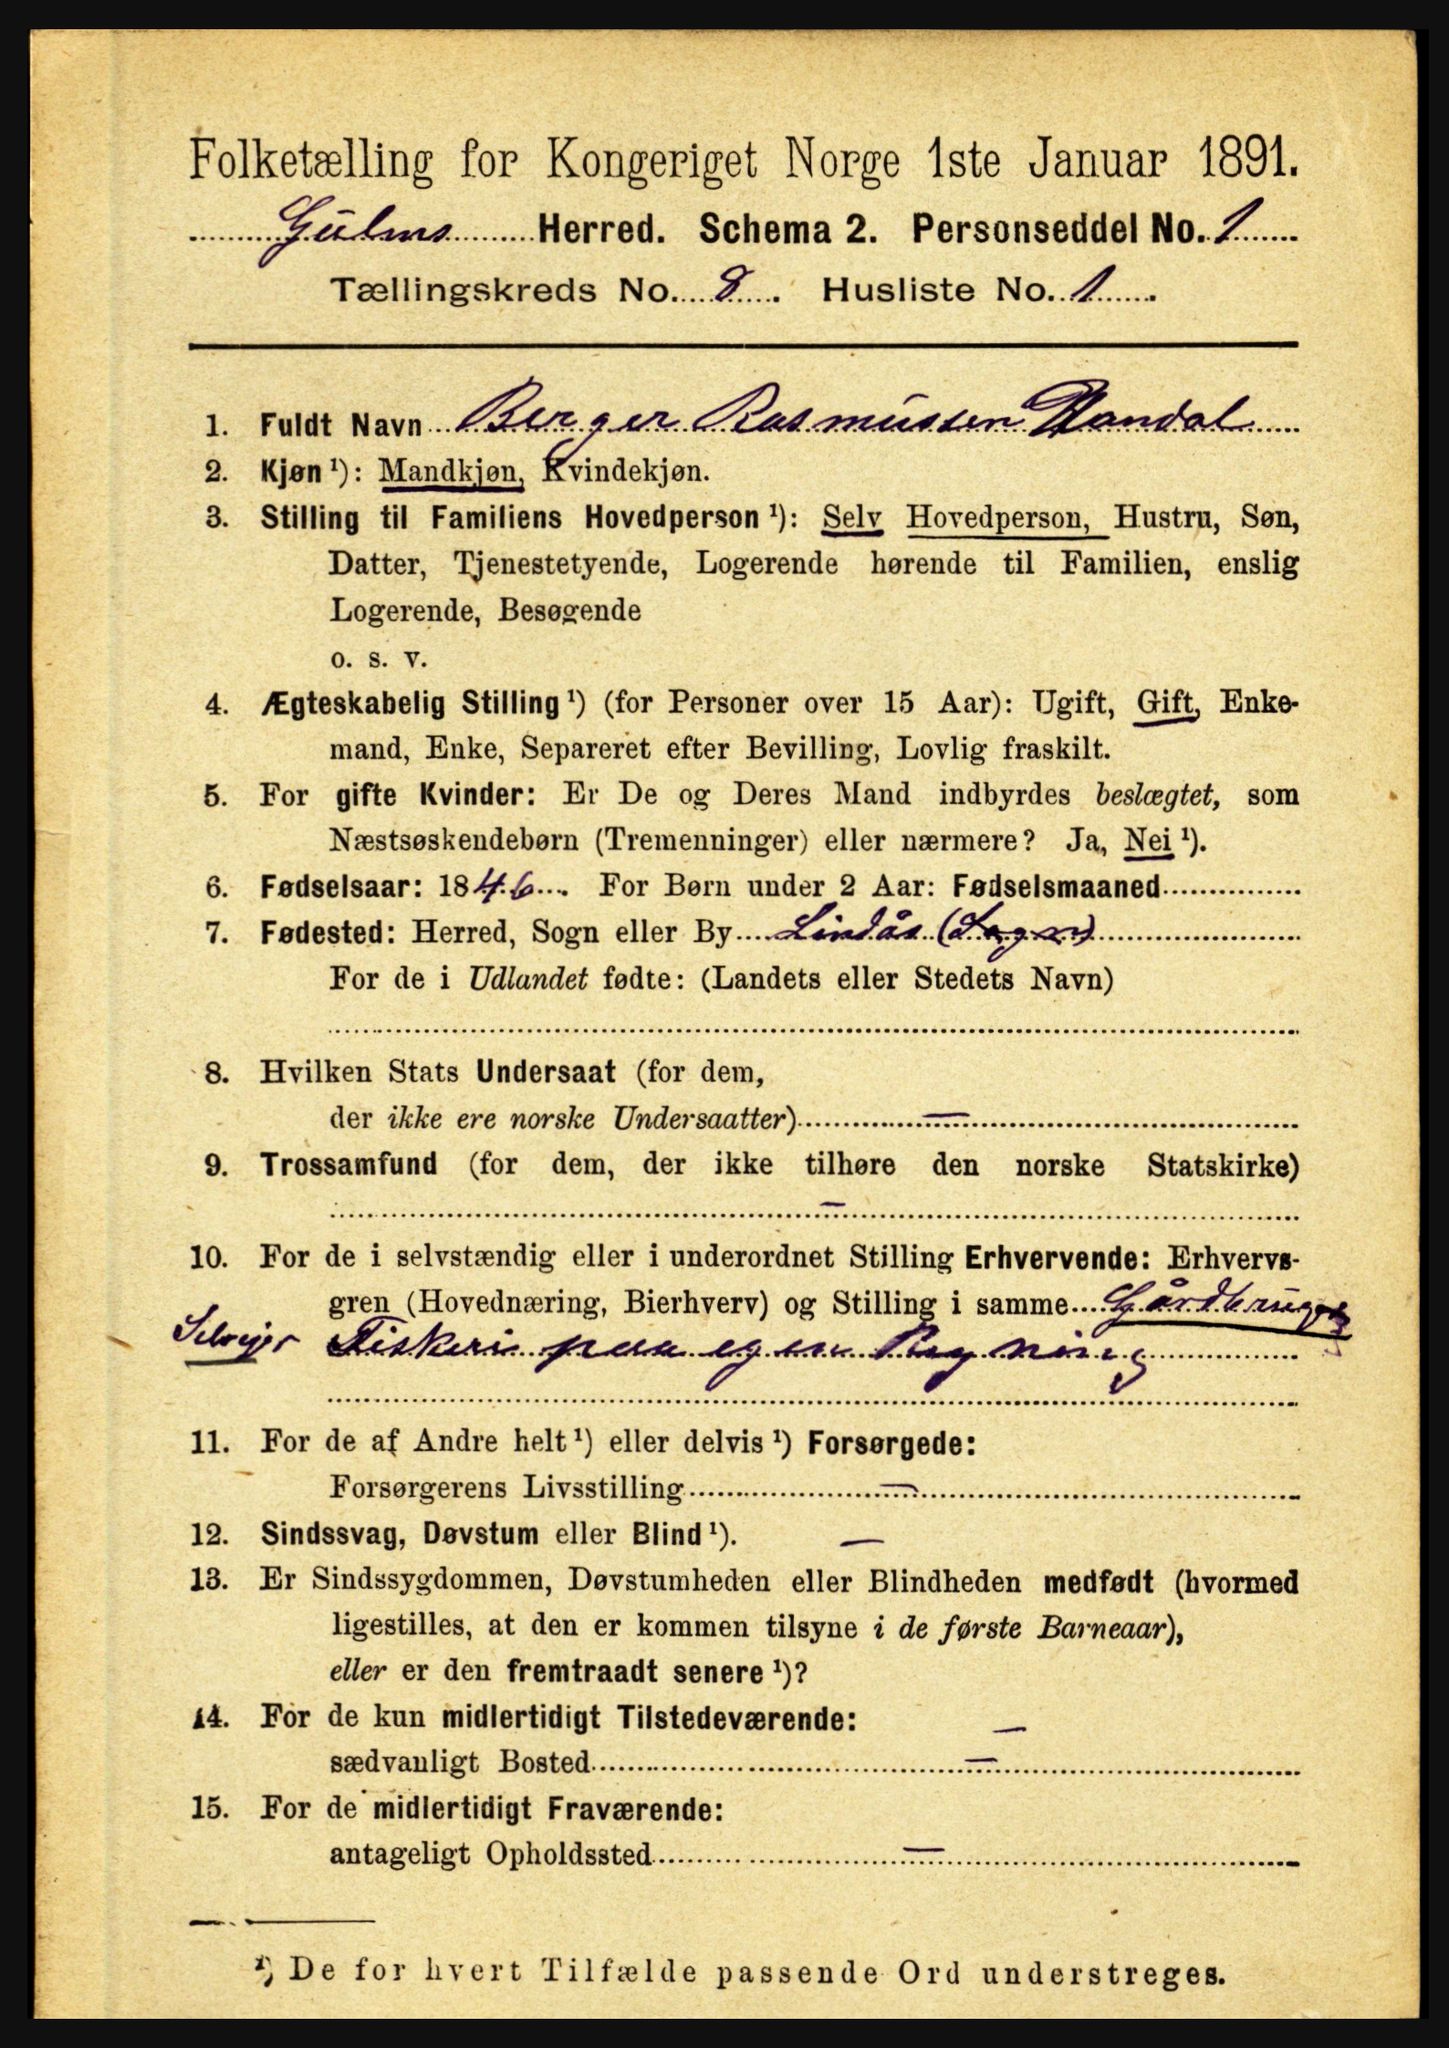 Folketælling for Kongeriget Norge 1ste Januar 1891.
Gulens Herred. Schema 2. Personseddel No. 1
Tællingskreds No. 8. Husliste No. 1.
1. Fuldt Navn Berger Rasmussen Nandal
2. Kjøn ¹): Mandkjøn, Kvindekjøn.
3. Stilling til Familiens Hovedperson ¹): Selv Hovedperson, Hustru, Søn,
Datter, Tjenestetyende, Logerende hørende til Familien, enslig
Logerende, Besøgende
o. s. v.
4. Ægteskabelig Stilling ¹) (for Personer over 15 Aar): Ugift, Gift, Enke-
mand, Enke, Separeret efter Bevilling, Lovlig fraskilt.
5. For gifte Kvinder: Er De og Deres Mand indbyrdes beslægtet, som
Næstsøskendebørn (Tremenninger) eller nærmere? Ja, Nei ¹).
6. Fødselsaar: 1846. For Børn under 2 Aar: Fødselsmaaned
7. Fødested: Herred, Sogn eller By Lindås (Sogn)
For de i Udlandet fødte: (Landets eller Stedets Navn)
8. Hvilken Stats Undersaat (for dem,
der ikke ere norske Undersaatter) —
9. Trossamfund (for dem, der ikke tilhøre den norske Statskirke)
—
10. For de i selvstændig eller i underordnet Stilling Erhvervende: Erhvervs-
gren (Hovednæring, Bierhverv) og Stilling i samme Gårdbruger
Selveier Fiskeri paa egen Regning
11. For de af Andre helt ¹) eller delvis ¹) Forsørgede:
Forsørgerens Livsstilling —
12. Sindssvag, Døvstum eller Blind ¹). —
13. Er Sindssygdommen, Døvstumheden eller Blindheden medfødt (hvormed
ligestilles, at den er kommen tilsyne i de første Barneaar),
eller er den fremtraadt senere ¹)?
14. For de kun midlertidigt Tilstedeværende: —
sædvanligt Bosted —
15. For de midlertidigt Fraværende:
antageligt Opholdssted —
¹) De for hvert Tilfælde passende Ord understreges.